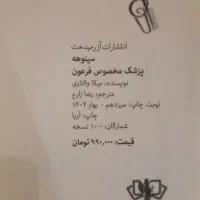 انتشارات آزرمیدخت
سینوهه
پزشک مخصوص فرعون
نویسنده: میکا والتاری
مترجم: رضا زارع
نوبت چاپ: سیزدهم - بهار ۱۴۰۴
چاپ: آریا
شمارگان: ۱۰۰۰ نسخه
قیمت: ۹۹۰,۰۰۰ تومان